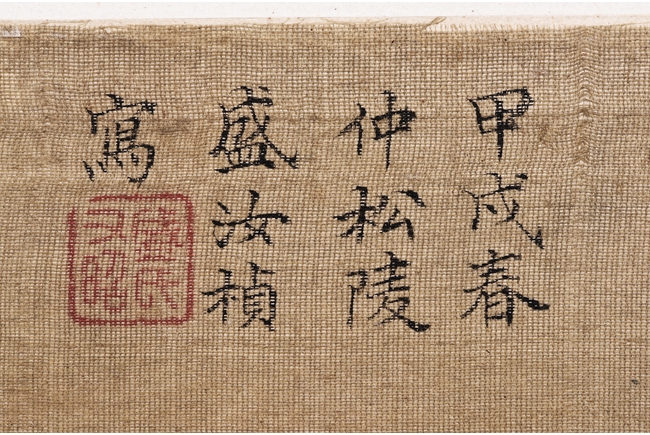 甲戌春
仲松陵
盛汝禎
寫
盛氏
又昭